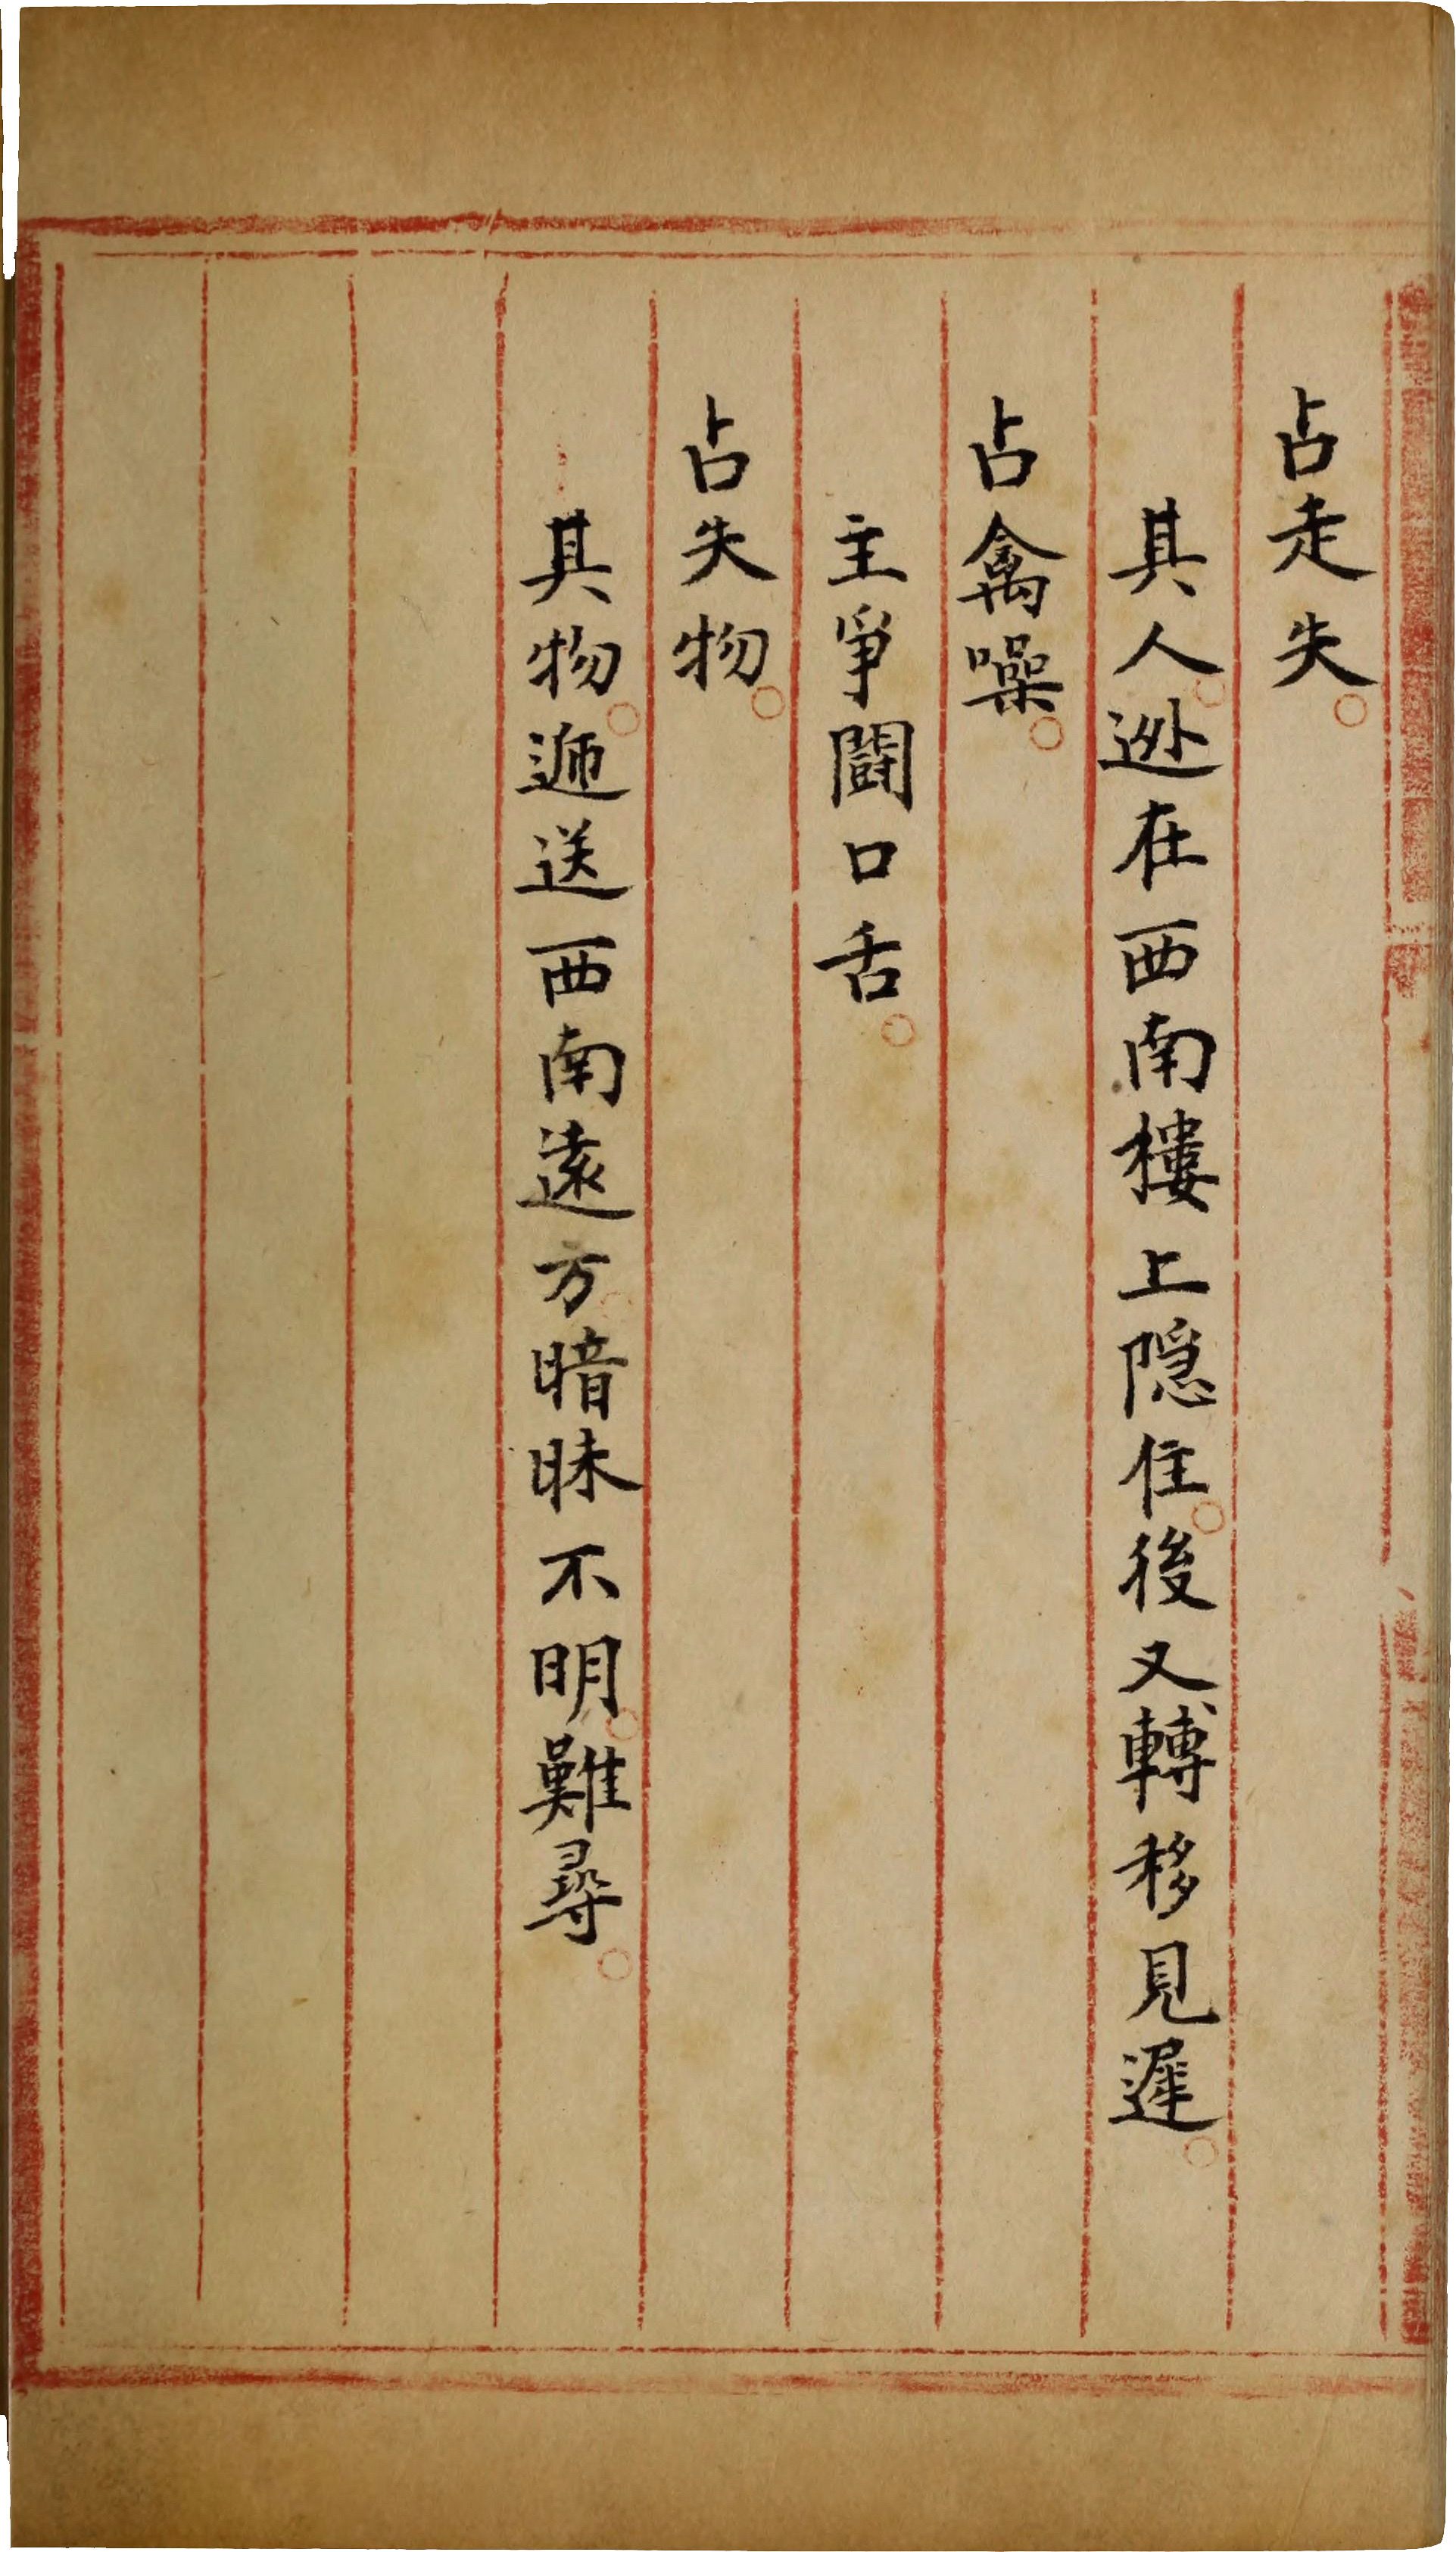 占走失○
其人○逊在西南樓上隱住○後又轉移見遲○
占禽噪○
主爭鬪口舌○
占失物○
其物○遞送西南遠方○暗昧不明○難尋○